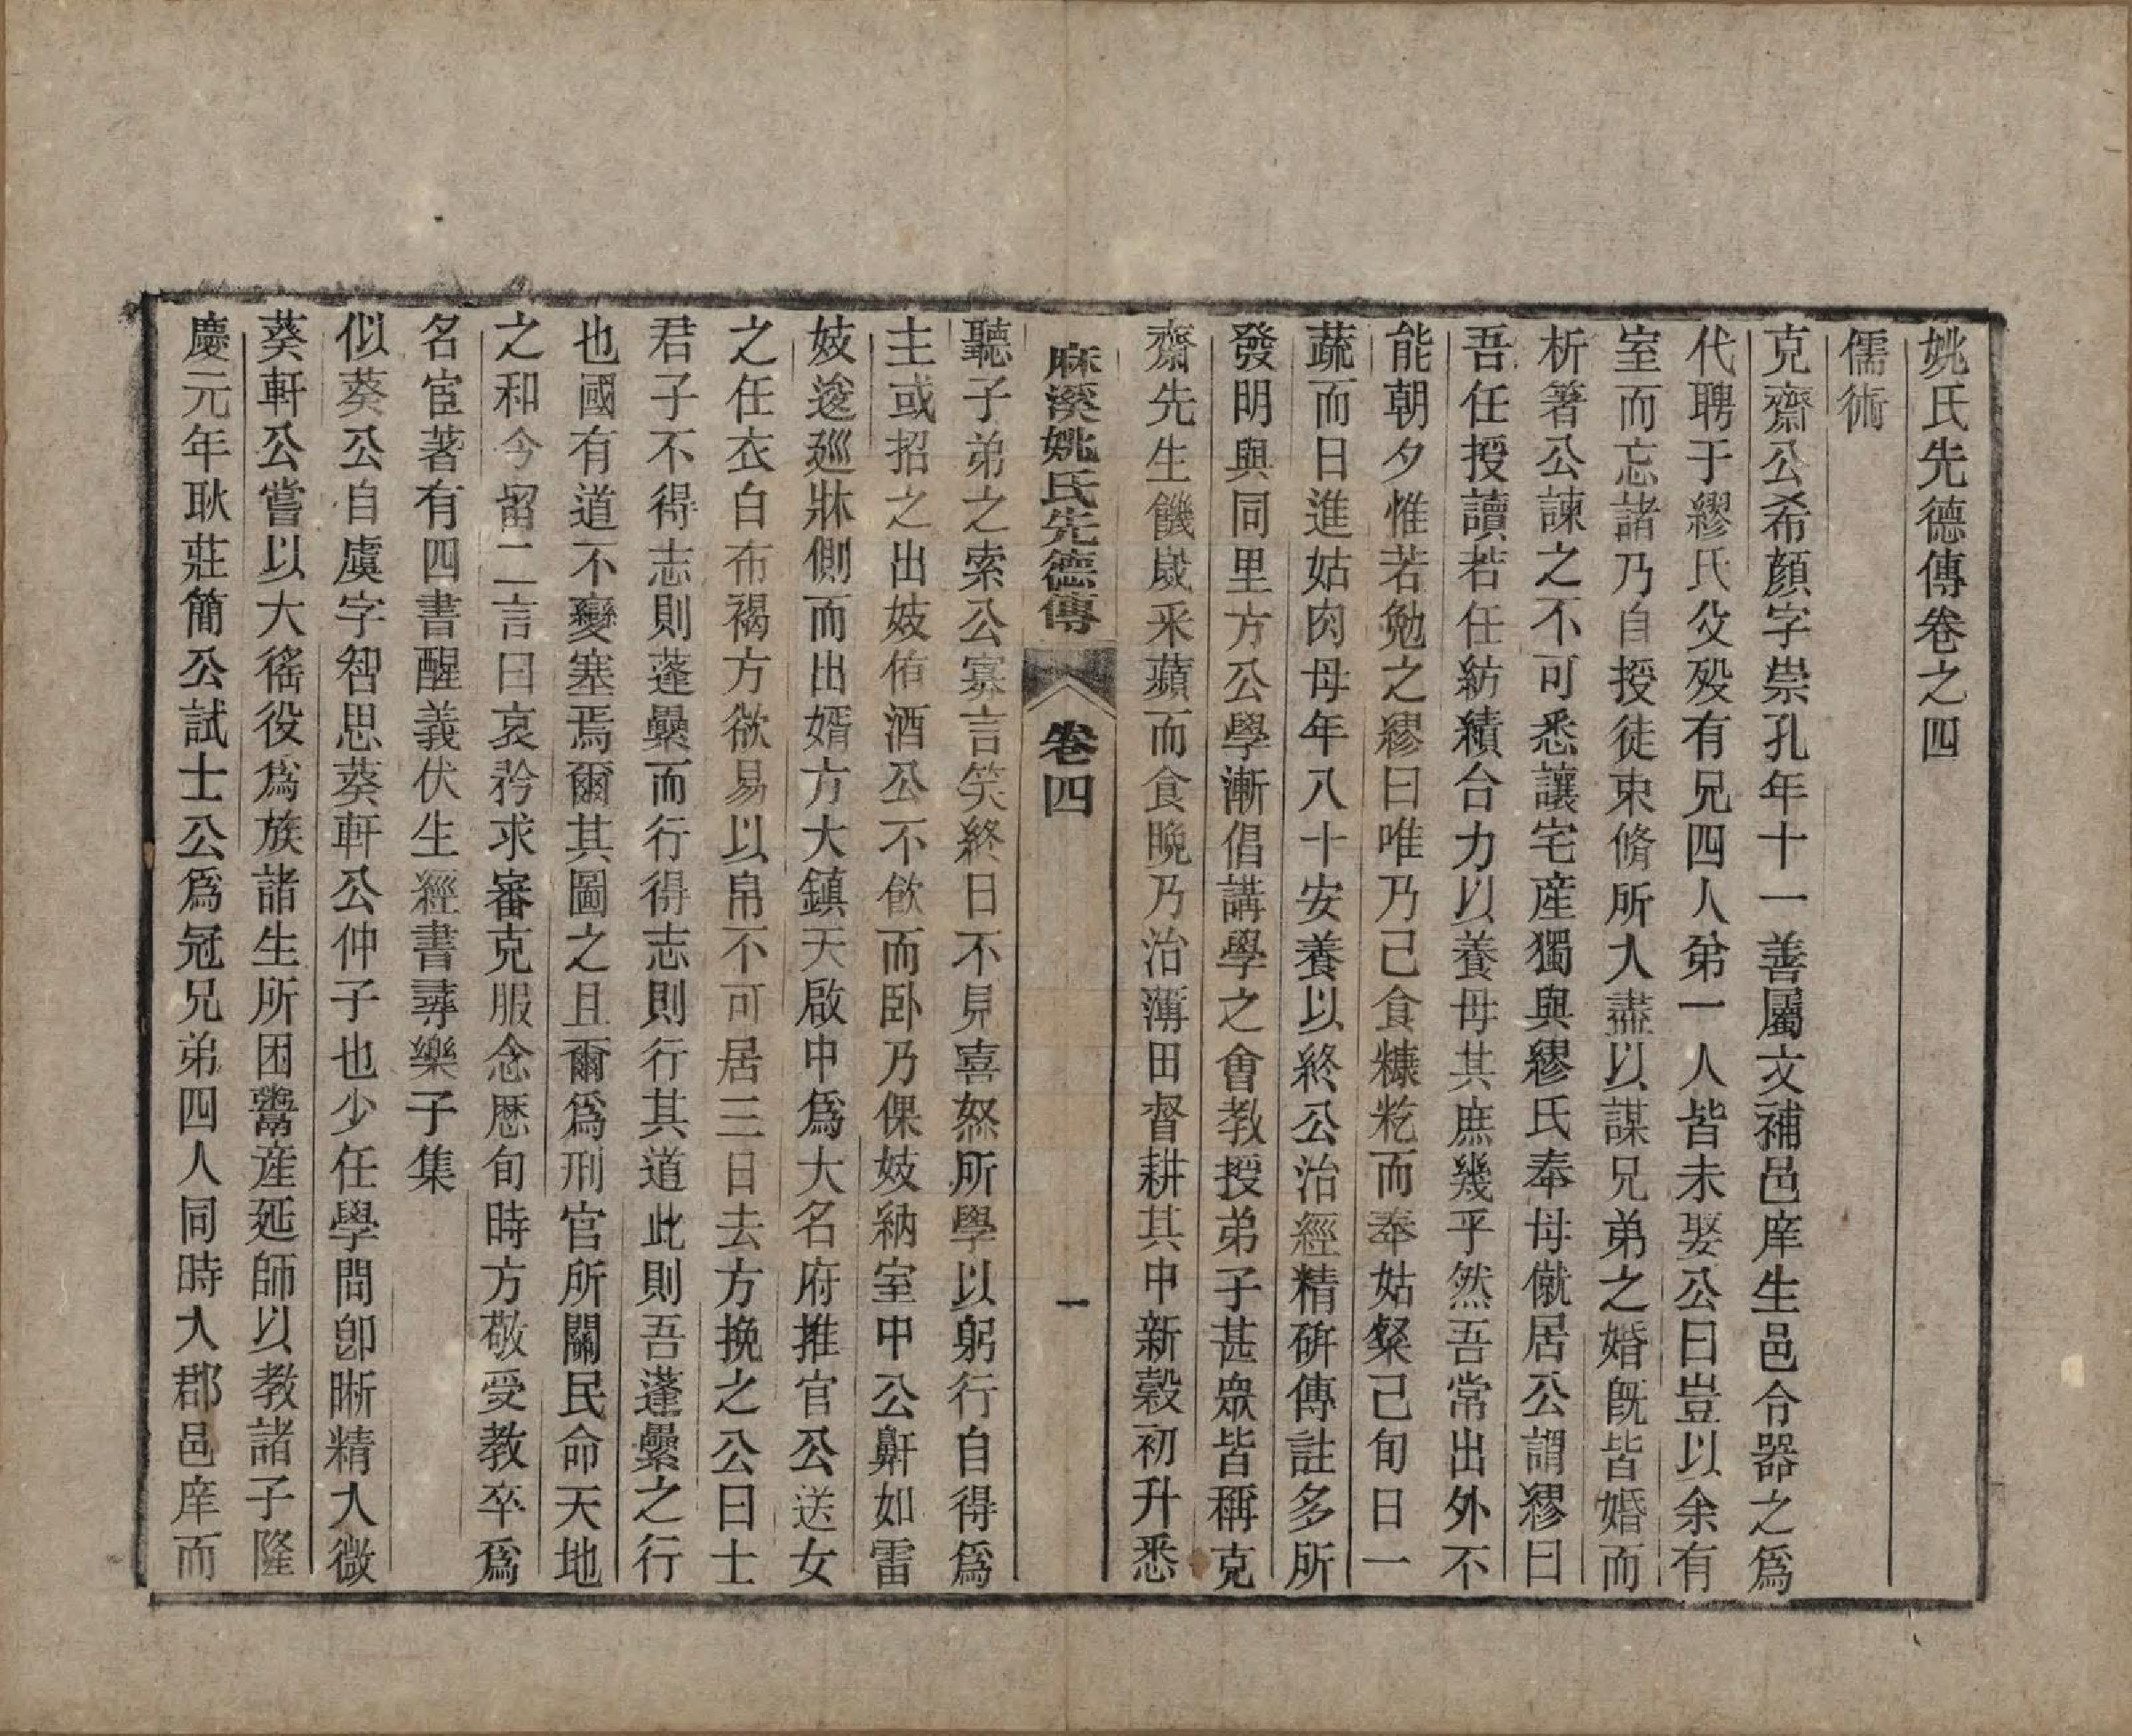 姚氏先德傳卷之四
儒術
克齋公希顏字崇孔年十一善屬文補邑庠生邑令器之爲
代聘于繆氏父歿有兄四人弟一人皆未娶公曰豈以余有
室而忘諸乃自授徒束脩所入盡以謀兄弟之婚旣皆婚而
析箸公諫之不可悉讓宅産獨與繆氏奉母僦居公謂繆曰
吾任授讀若任紡績合力以養母其庶幾乎然吾常出外不
能朝夕惟若勉之繆曰唯乃己食糠籺而奉姑粲己旬日一
蔬而日進姑肉母年八十安養以終公治經精硏傳註多所
發明與同里方公學漸倡講學之會教授弟子甚眾皆稱克
齋先生饑歲采蘋而食晚乃治薄田督耕其中新穀初升悉
麻溪姚氏先德傳 卷四 一
聽子弟之索公寡言笑終日不見喜怒所學以躬行自得爲
主或招之出妓侑酒公不飮而卧乃倮妓納室中公鼾如雷
妓逡巡牀側而出婿方大鎮天啟中爲大名府推官公送女
之任衣白布褐方欲易以帛不可居三日去方挽之公曰士
君子不得志則蓬纍而行得志則行其道此則吾蓬纍之行
也國有道不變塞焉爾其圖之且爾爲刑官所關民命天地
之和今留二言曰哀矜求審克服念歷旬時方敬受教卒爲
名宦著有四書醒義伏生經書尋樂子集
似葵公自虞字智思葵軒公仲子也少任學問卽晰精入微
葵軒公嘗以大徭役爲族諸生所困鬻産延師以教諸子隆
慶元年耿莊簡公試士公爲冠兄弟四人同時入郡邑庠而